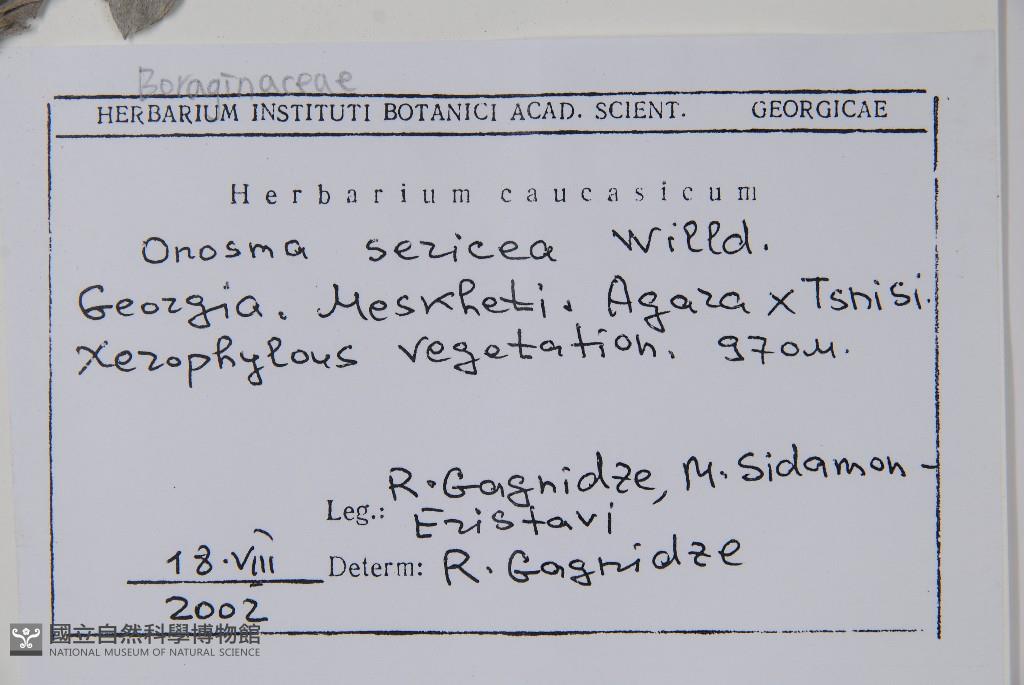 Boraginaceae
HERBARIUM INSTITUTI BOTANICI ACAD. SCIENT. GEORGICAE
Herbarium caucasicum
Onosma sericea Willd.
Georgia. Meskheti. Agara x Tsnisi.
Xerophylous vegetation. 970 m.
R. Gagnidze, M. Sidamon-
Leg.: Eristavi
18.VIII Determ: R. Gagnidze
2002
國立自然科學博物館
NATIONAL MUSEUM OF NATURAL SCIENCE